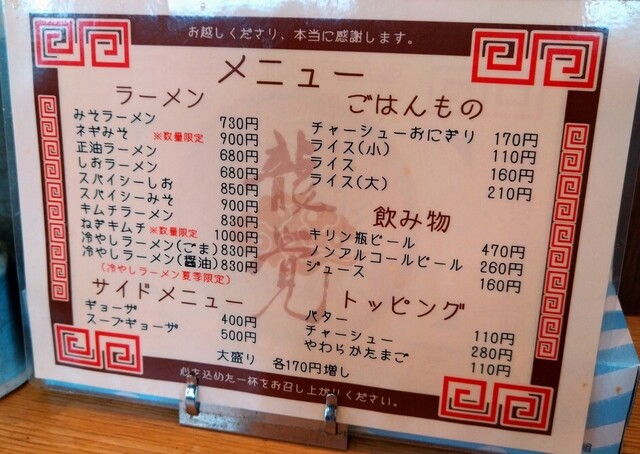 お越しくださり、本当に感謝します。
メニュー
ラーメン
みそラーメン 730円
ネギみそ ※数量限定 900円
正油ラーメン 680円
しおラーメン 680円
スパイシーしお 850円
スパイシーみそ 900円
キムチラーメン 830円
ねぎキムチ ※数量限定 1000円
冷やしラーメン(ごま) 830円
冷やしラーメン(醤油) 830円
(冷やしラーメン夏季限定)
サイドメニュー
ギョーザ 400円
スープギョーザ 500円
大盛り 各170円増し
ごはんもの
チャーシューおにぎり 170円
ライス(小) 110円
ライス 160円
ライス(大) 210円
飲み物
キリン瓶ビール 470円
ノンアルコールビール 260円
ジュース 160円
トッピング
バター 110円
チャーシュー 280円
やわらかたまご 110円
龍覚
心を込めた一杯をお召し上がりください。